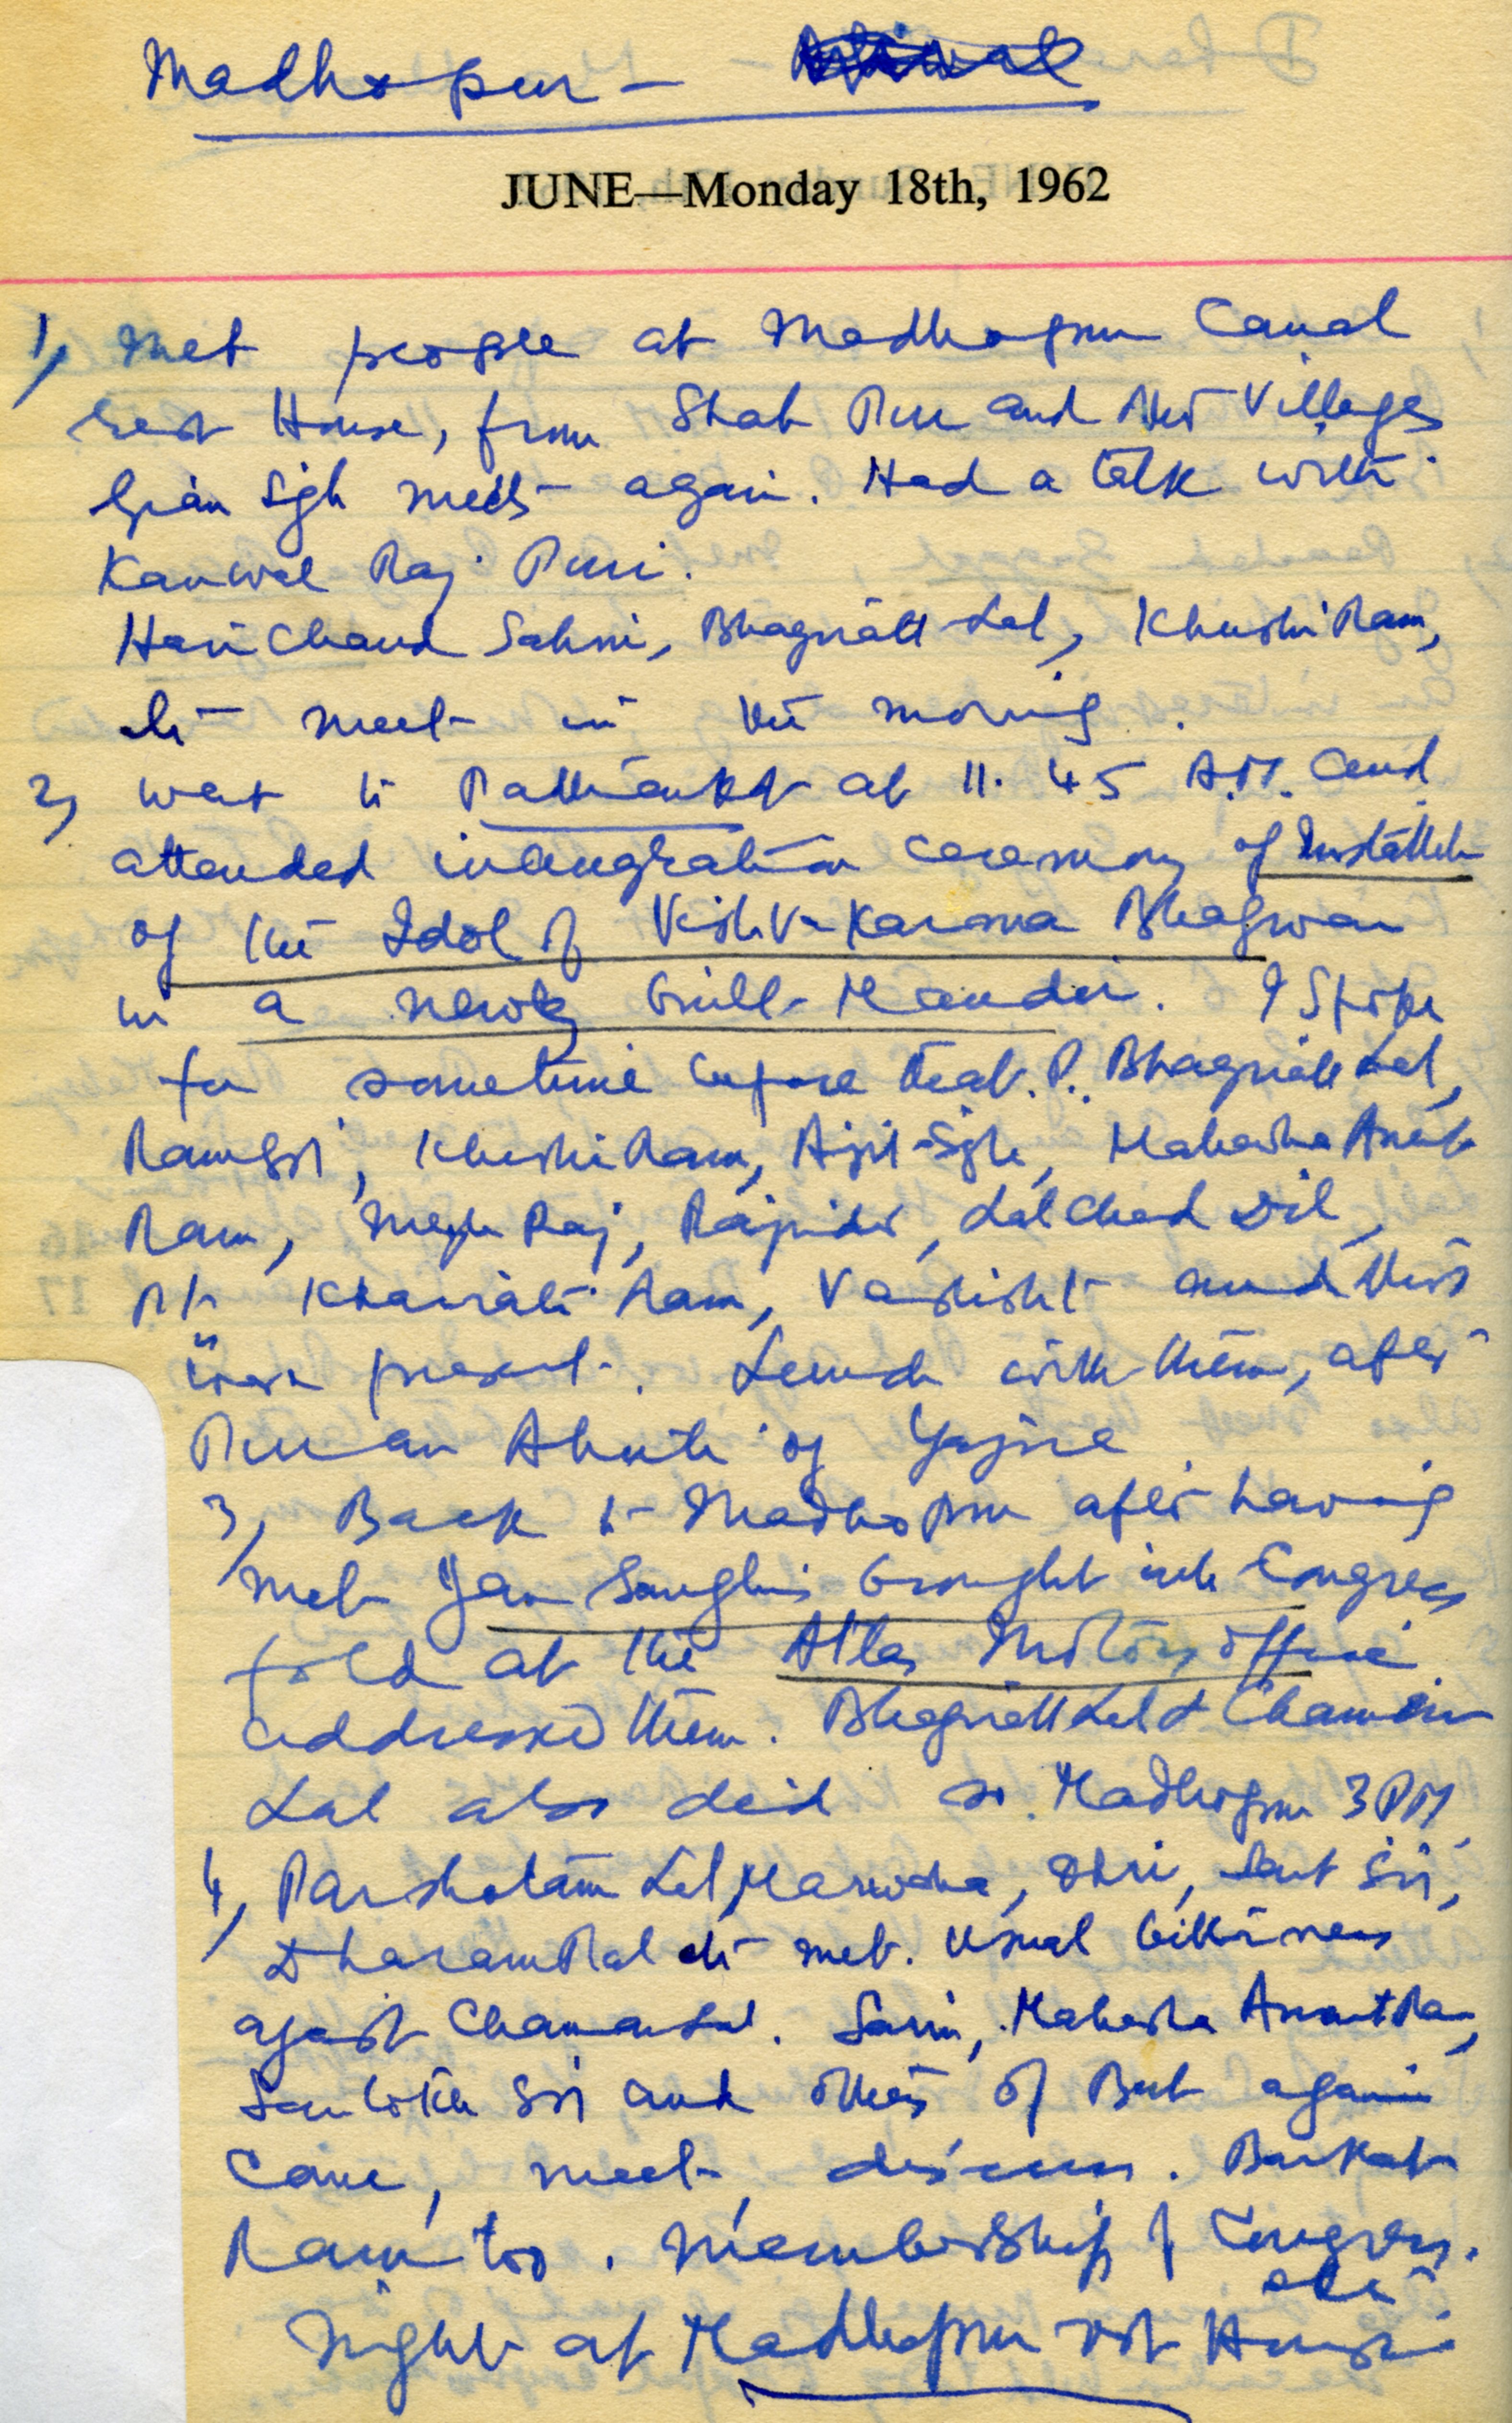 Madhopur -
JUNE—Monday 18th, 1962
1, Met people at Madhopur Canal
rest House, from Shah Pur and other Villages
Gian Sgh meets again. Had a talk with
Kanwal Raj Puri.
Hari Chand Sahni, Bhagnath Lal, Khushi Ram,
etc meet in the morning.
2, went to Pathankot at 11.45 A.M. and
attended inaugration ceremony of Installtn
of the Idol of Vishv-Karama Bhagwan
in a newly built Mandir. I spoke
for sometime before that. P. Bhagnath Lal,
Ram Sgh, Khushi Ram, Ajit Sgh, Mahasha Anant
Ram, Megh Raj, Rajinder, Lal Chand Dil,
Pt. Khairati Ram, Vashisht and others
were present. Lunch with them, after
Puran Ahuti of Yajna
3, Back to Madhopur after having
met Jan Sanghis brought into Congress
fold at the Atlas Motors office
addressed them. Bhagnath Lal & Chaman
Lal also did so. Madhopur 3 PM.
4, Parshotam Lal, Marwaha, Ohri, Sant Sgh,
Dharam Pal etc met. Usual bitterness
against Chaman Lal. Saini, Mahasha Anant Ram,
Santokh Sgh and others of But again
Came, meet, discuss. Barkat
Ram too. Membership of Congress.
etc
Night at Madhopur rest House